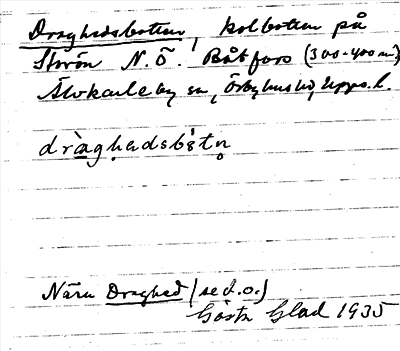 Draghedsbotten, kolbotten på
Storön N.Ö. Båtfors (300-400 m)
Älvkarleby sn, Örbyhus hd, Upps. l.
dràghadsbòtn
Nära Draghed (se d.o.)
Gösta Glad 1935